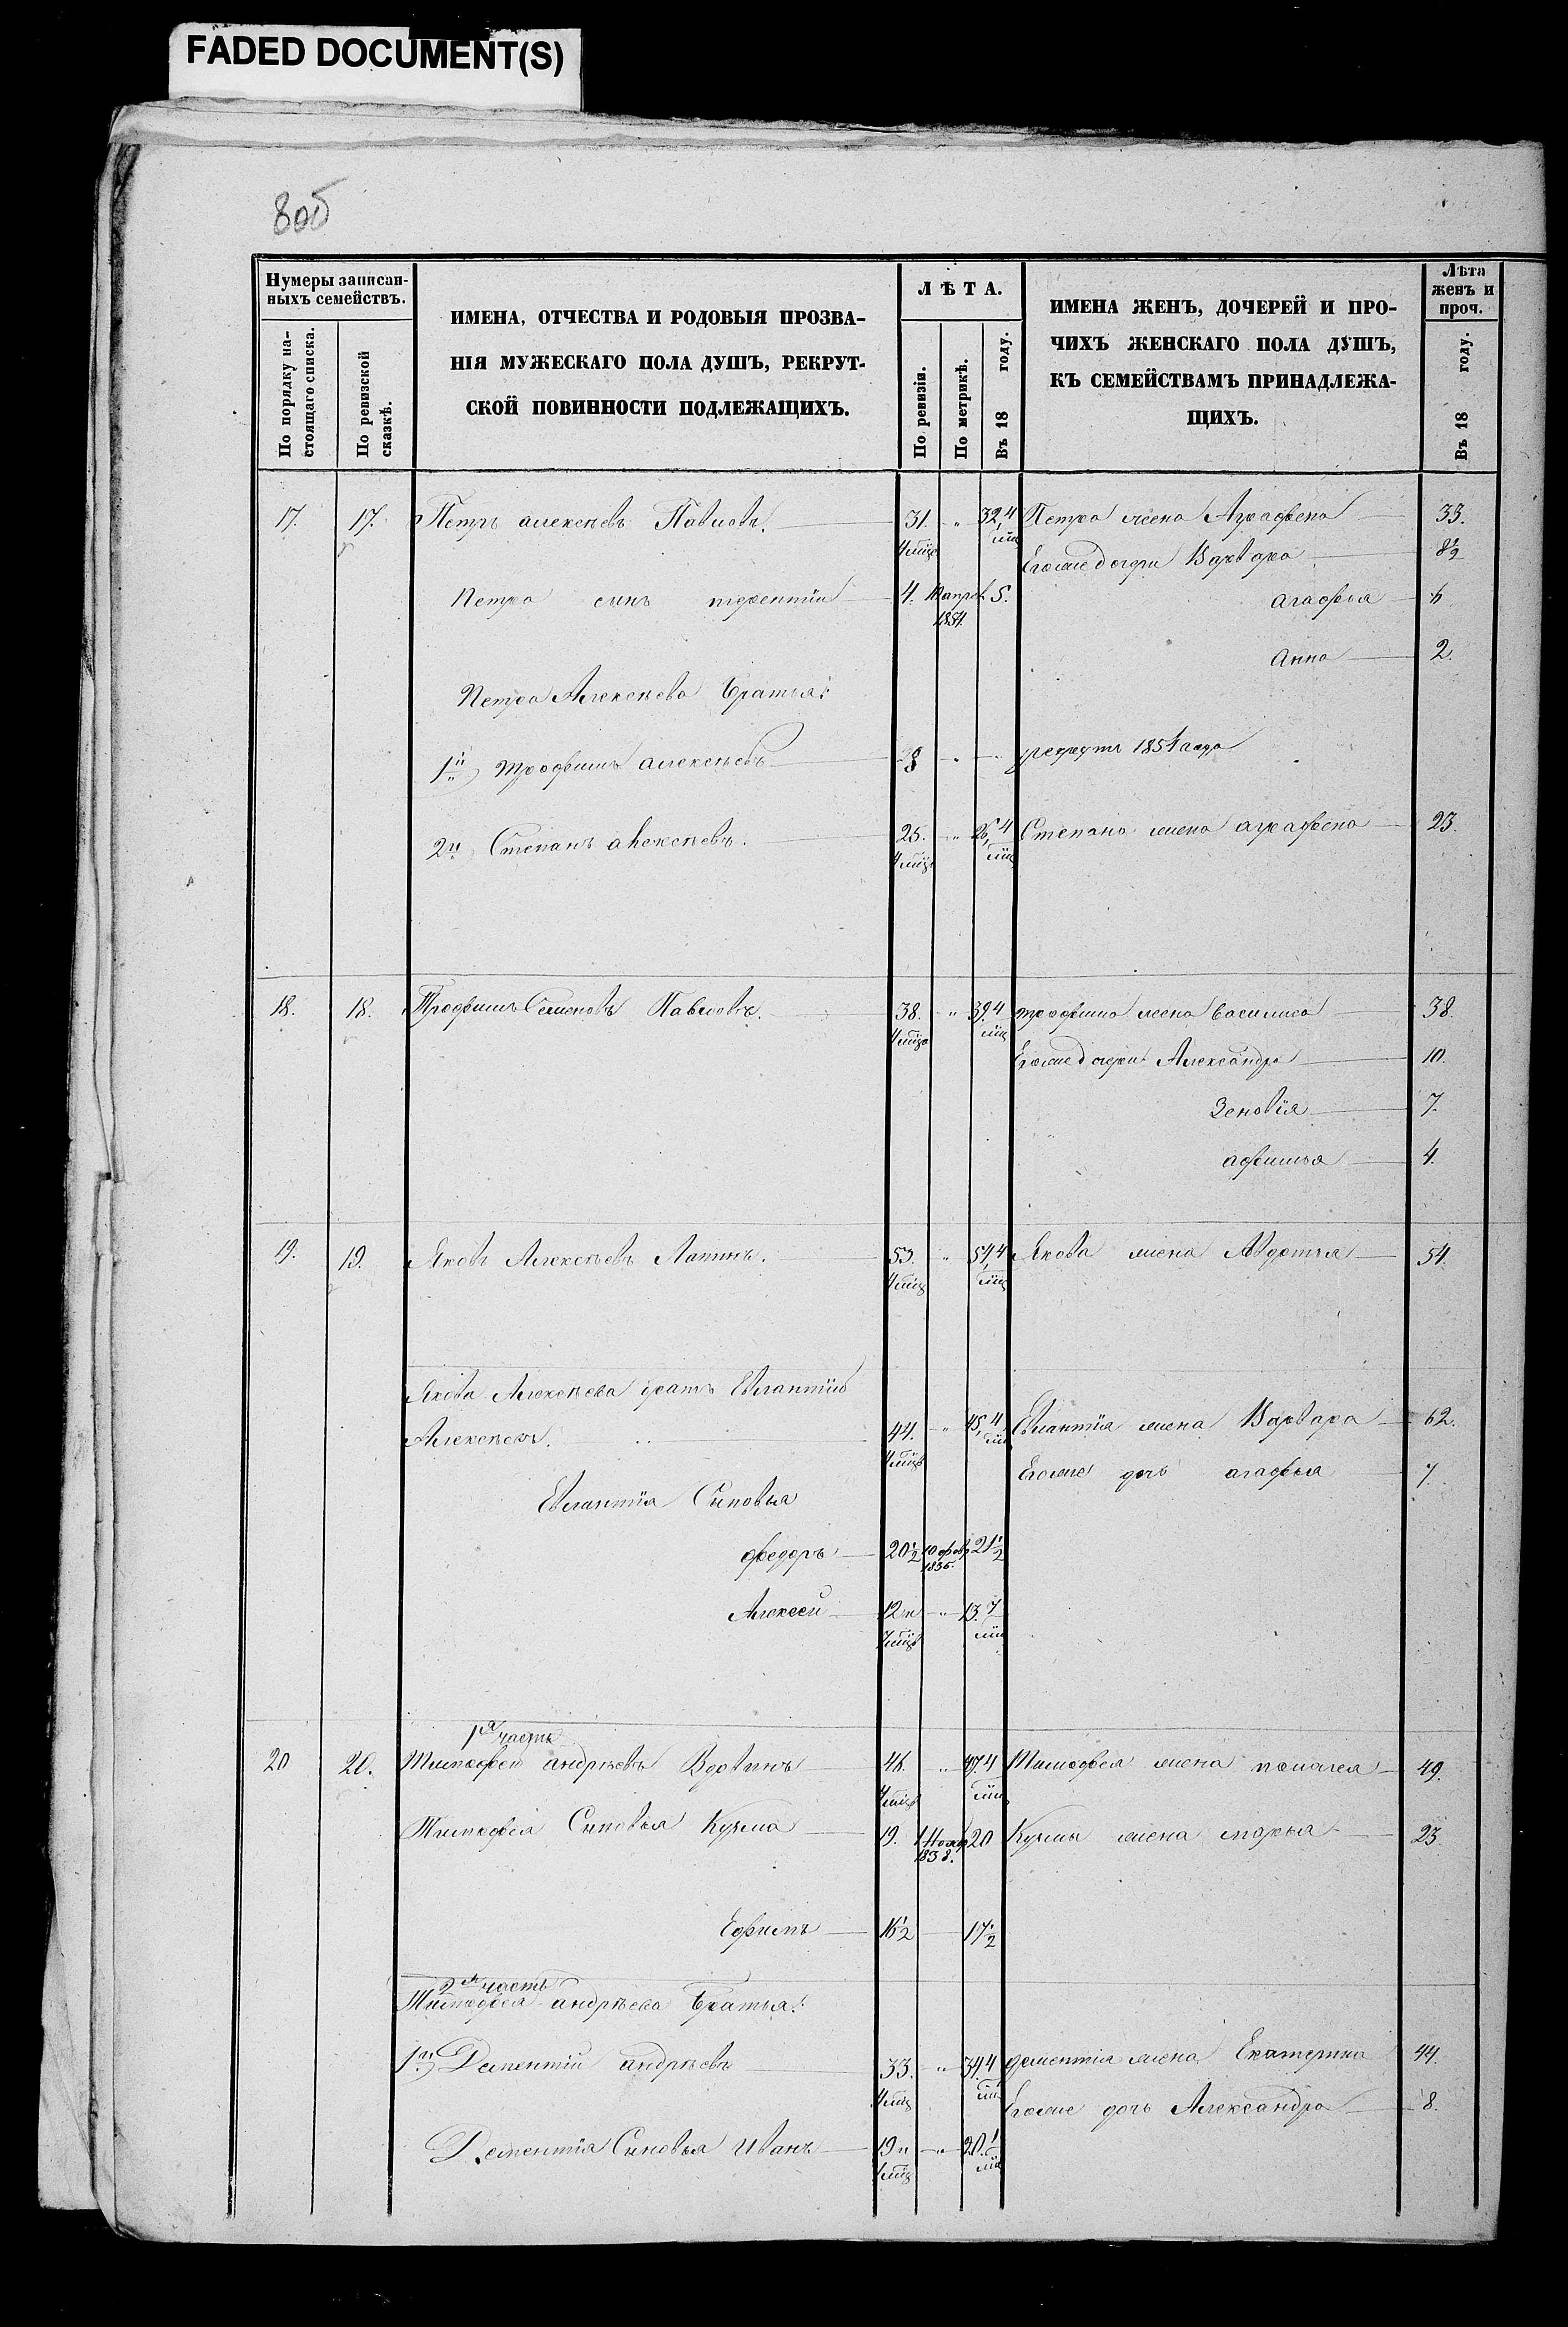 FADED DOCUMENT(S)
8об
Нумеры записан-
ныхъ семействъ.
По порядку на-
стоящаго списка.
По ревизской
сказкѣ.
ИМЕНА, ОТЧЕСТВА И РОДОВЫЯ ПРОЗВА-
НІЯ МУЖЕСКАГО ПОЛА ДУШЪ, РЕКРУТ-
СКОЙ ПОВИННОСТИ ПОДЛЕЖАЩИХЪ.
ЛѢТА.
По ревизіи.
По метрикѣ.
Въ 18 году.
ИМЕНА ЖЕНЪ, ДОЧЕРЕЙ И ПРО-
ЧИХЪ ЖЕНСКАГО ПОЛА ДУШЪ,
КЪ СЕМЕЙСТВАМЪ ПРИНАДЛЕЖА-
ЩИХЪ.
Лѣта
женъ и
проч.
Въ 18 году.
17. 17. Петръ алексѣевъ Павловъ. 31. " 32,4 Петра жена Аграфена 33.
4 мѣц мѣц
Его же дочери Варвара 8½
Петра сынъ терентій 4. апрѣ 5. агафья 6
1854.
Анна 2.
Петра Алексѣева братья:
1й) трофимъ алексѣевъ 28 " рекрутъ 1854 года
2й Степанъ алексѣевъ. 25. " 26,4 Степана жена аграфена 23.
4 мѣц мѣц
18. 18. Трофимъ Семеновъ Павловъ. 38. " 39,4 трофима жена василиса 38.
4 мѣц мѣц
Его же дочери Александра 10.
Зеновія 7.
афимья 4.
19. 19. Яковъ Алексѣевъ Лапинъ. 53. " 54,4 Якова жена Авдотья 54.
4 мѣц мѣц
Якова Алексѣева братъ Евлантій
Алексѣевъ. 44. " 45,4 Евлантія жена Варвара 62.
4 мѣц мѣц
Его же дочь агафья 7.
Евлантія Сыновья
федоръ 20½ 10 февр 21½
1836.
Алексей 12 и " 13.7
7 мѣц мѣц
1я часть
20 20. Тимофей андрѣевъ Вдовинъ 46. " 47.4 Тимофея жена пелагея 49.
4 мѣц мѣц
Тимофея Сыновья Кузма 19. 1 Нояб 20 Кузмы жена марья 23
1838.
Ефимъ 16½ 17½
2я часть
Тимофея андрѣева братья:
1й) Дементій андрѣевъ 33. " 34.4 дементія жена Екатерина 44.
4 мѣц мѣц
Его же дочь Александра 8.
Дементія Сыновья Иванъ 19 и " 20.1
1 мѣц мѣц